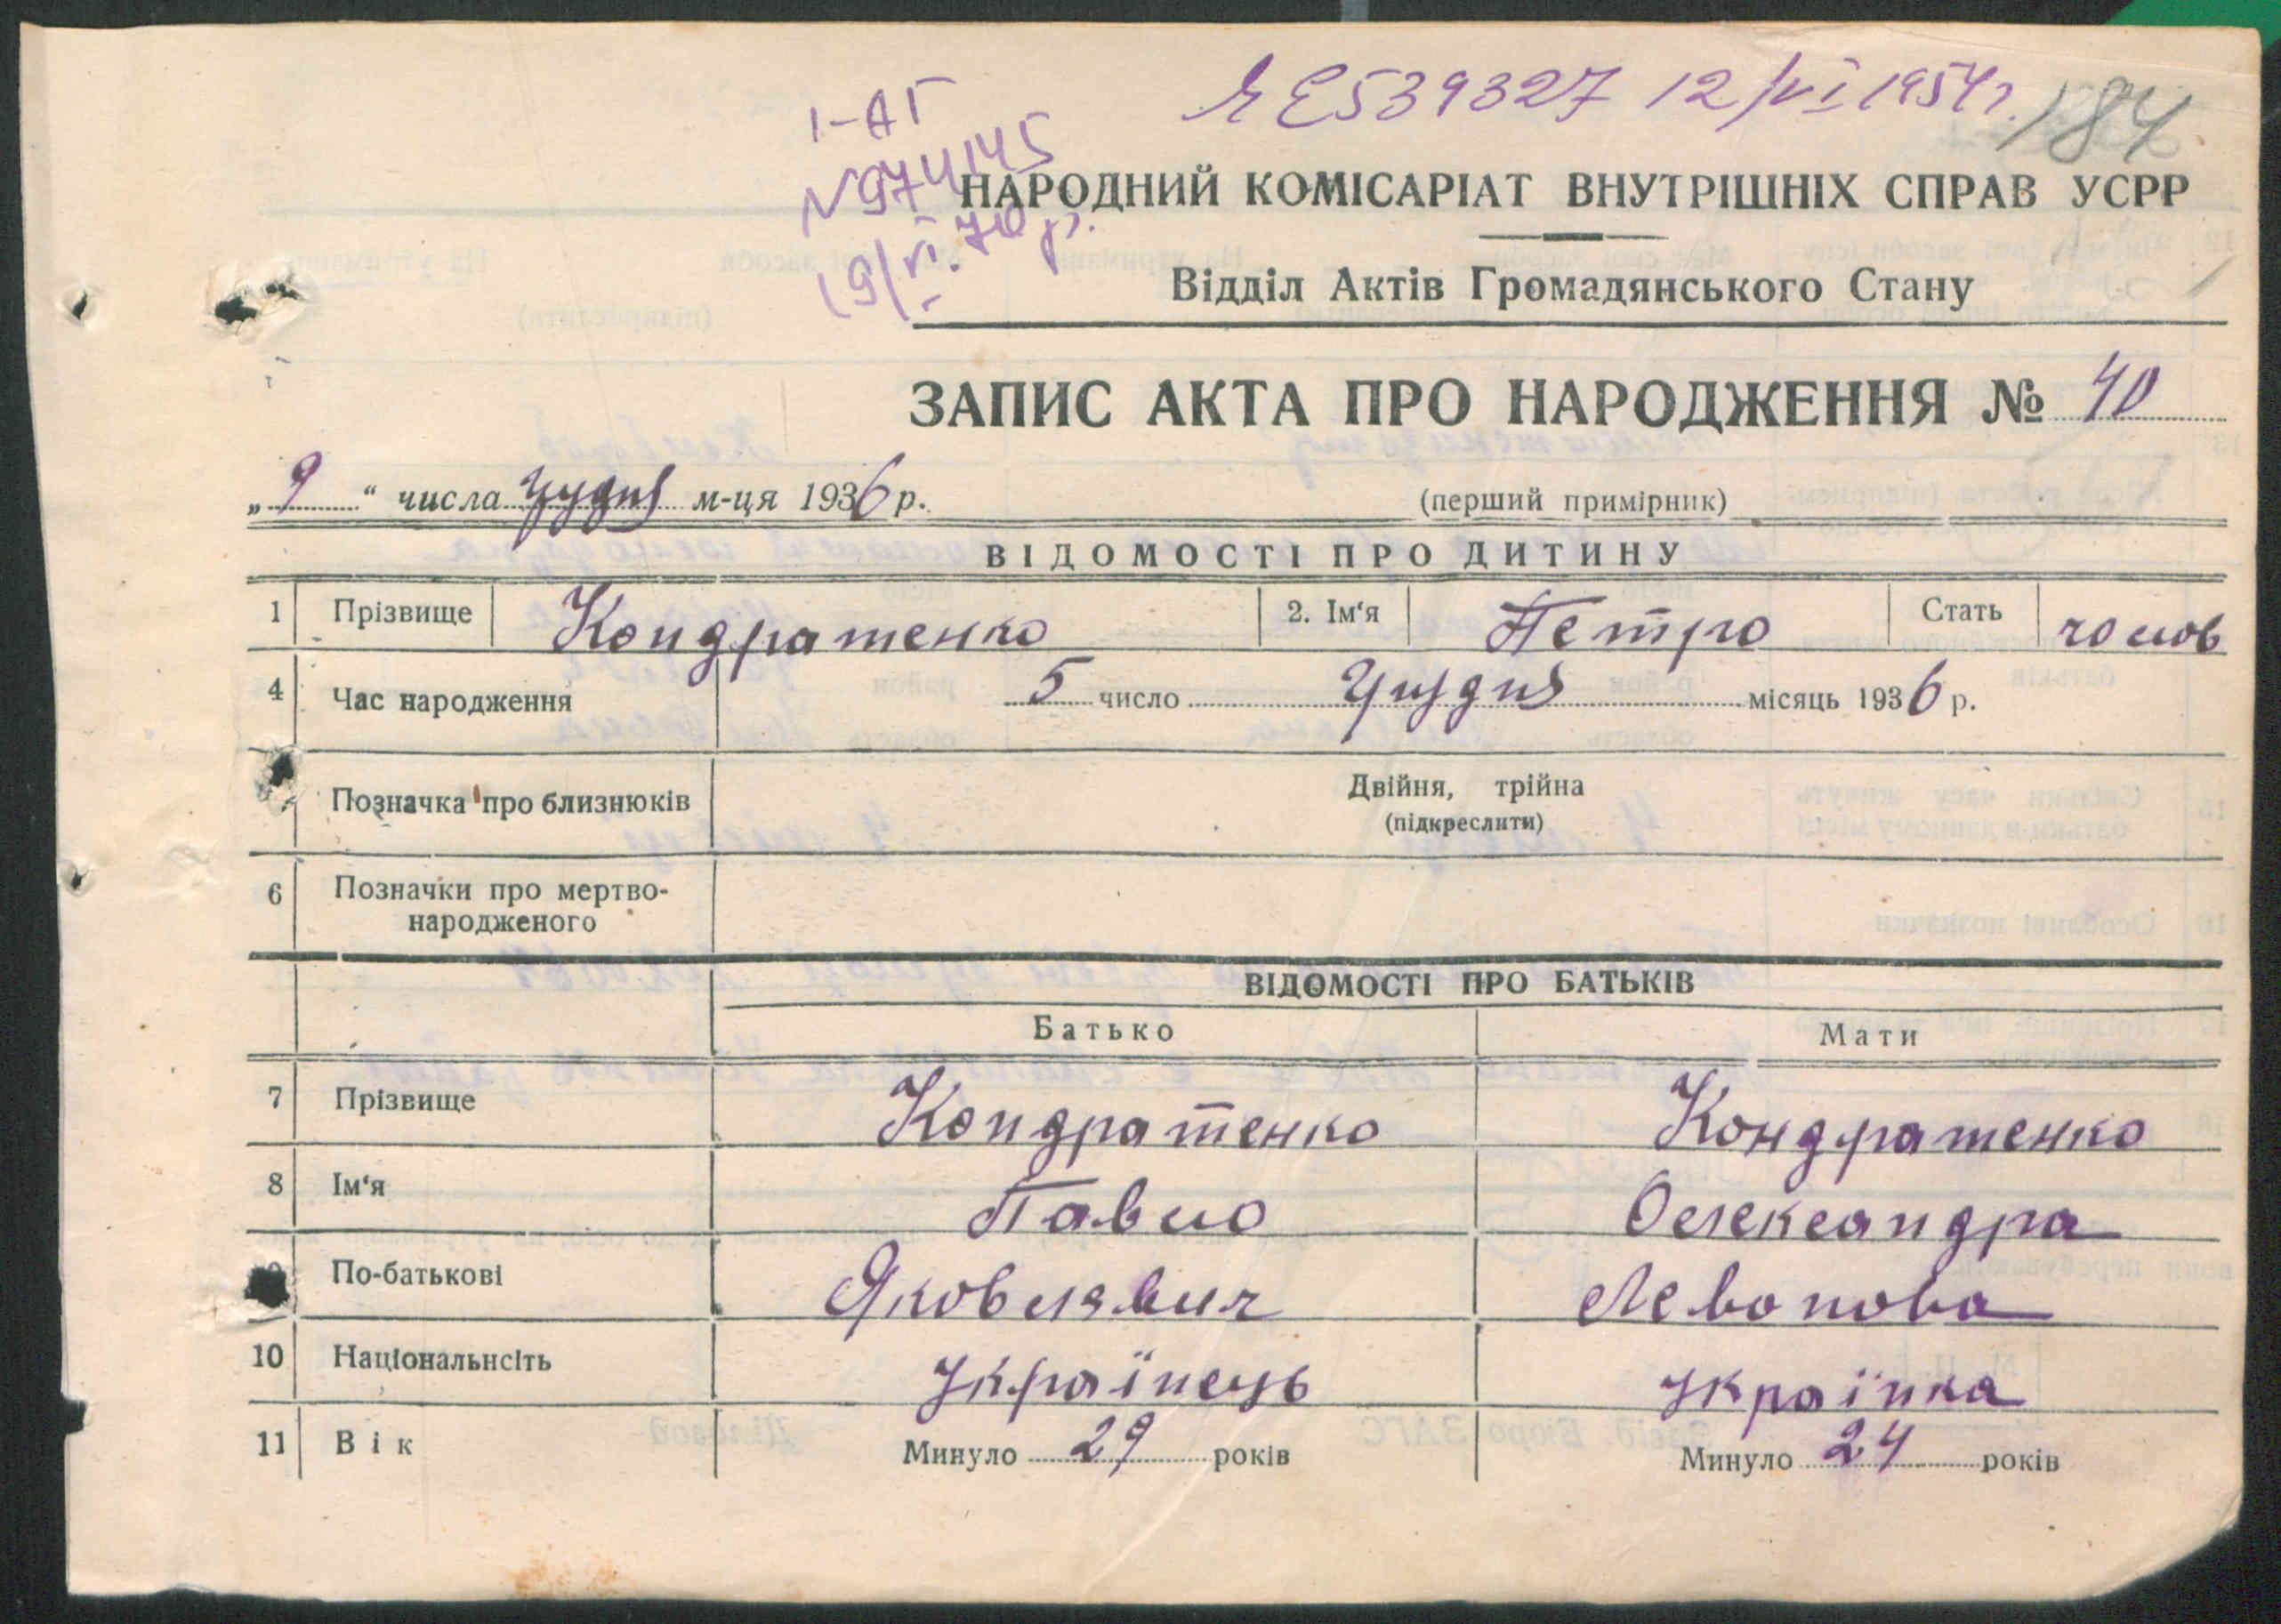 ЯЕ539327 12/VI 1954г.
184
I-АГ
N974145
19/VI.70 р.
НАРОДНИЙ КОМІСАРІАТ ВНУТРІШНІХ СПРАВ УСРР
Відділ Актів Громадянського Стану
ЗАПИС АКТА ПРО НАРОДЖЕННЯ № 40
„9“ числа грудня м-ця 1936 р. (перший примірник)
ВІДОМОСТІ ПРО ДИТИНУ
1 Прізвище Кондратенко 2. Ім‘я Петро Стать чолов
4 Час народження 5 число Грудня місяць 1936 р.
Позначка про близнюків Двійня, трійна
(підкреслити)
6 Позначки про мертво-
народженого
ВІДОМОСТІ ПРО БАТЬКІВ
Батько Мати
7 Прізвище Кондратенко Кондратенко
8 Ім‘я Павло Олександра
9 По-батькові Яковлевич Левонова
10 Національнсіть Українець Українка
11 Вік Минуло 29 років Минуло 24 років